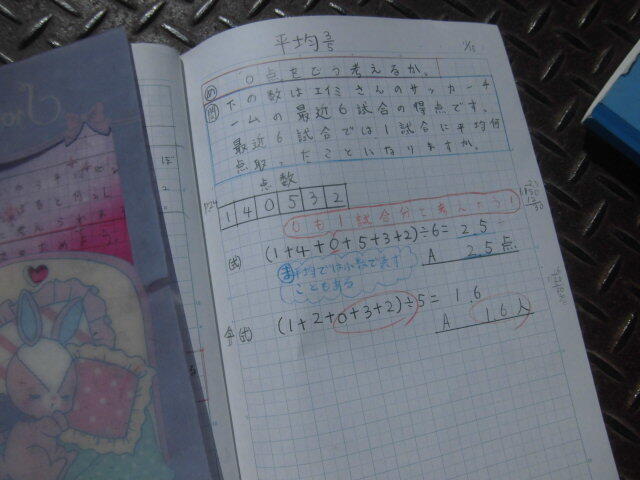 平均 3/5
め 0点をどう考えるか。
問 下の数はエイミさんのサッカーチ
ームの最近6試合の得点です。
最近6試合では1試合に平均何
点取ったことになりますか。
点数
1 4 0 5 3 2
0も1試合分と考えよう!
式 (1+4+0+5+3+2)÷6=2.5
A 2.5点
ま 平均では小数で表す
こともある
(1+2+0+3+2)÷5=1.6
A 1.6人